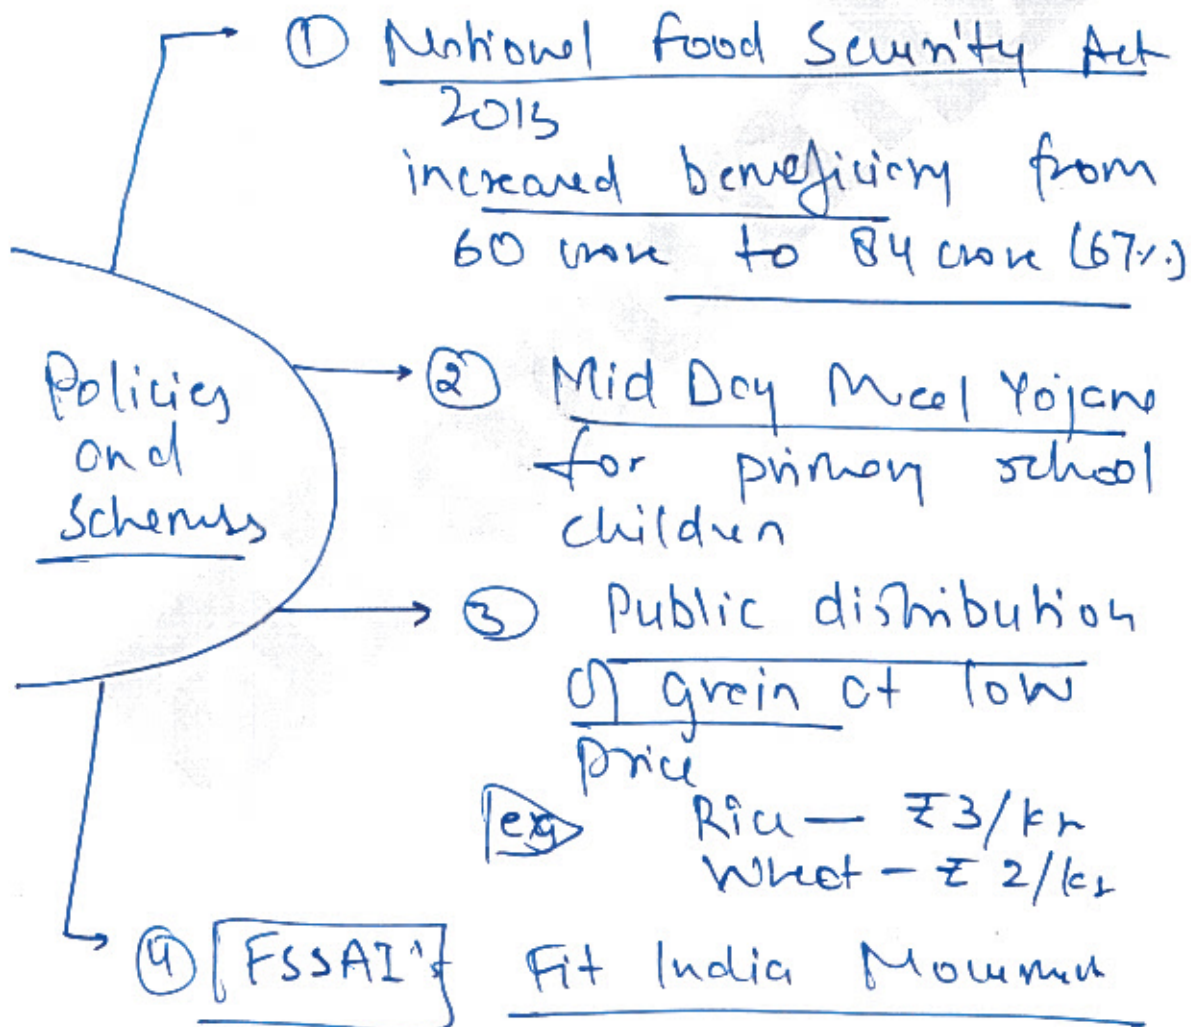 ① National Food Security Act
2013
increased beneficiary from
60 crore to 84 crore (67%)
Policies
and
Schemes
② Mid Day Meal Yojana
for primary school
children
③ Public distribution
of grain at low
price
eg Rice — ₹3/kg
Wheat - ₹2/kg
④ FSSAI's Fit India Movement